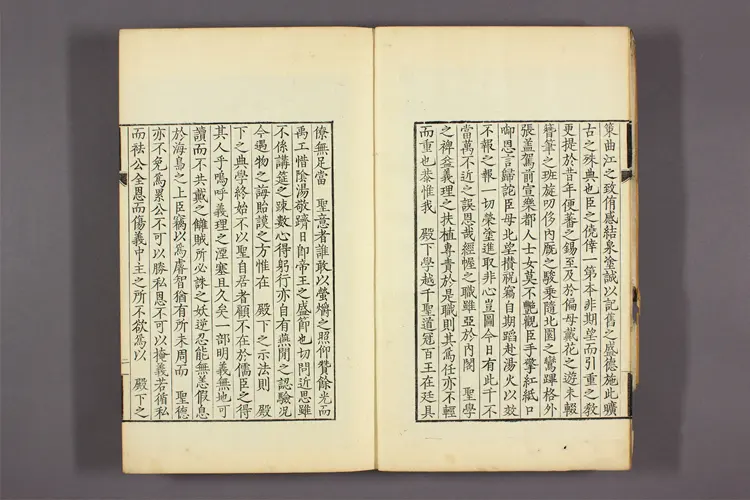 策曲江之致侑感結泉塗誠以記舊之盛德施此曠
古之殊典也臣之僥倖一第本非期望而引重之敎
更提於昔年便蕃之錫至及於偏母戴花之遊未輟
簪筆之班旋叨侈內廐之駿乘隨北園之鸞蹕格外
張盖駕前宣樂都人士女莫不艶觀臣手擎紅紙口
啣恩言歸詑臣母北望攢祝竊自期蹈赴湯火以效
不報之報一切榮塗進取非心豈圖今日有此千不
當萬不近之誤恩哉經幄之職雖亞於內閣 聖學
之裨益義理之扶植專責於是職則其爲任亦不輕
而重也恭惟我 殿下學越千聖道冠百王在廷具
僚無足當 聖意者誰敢以螢爝之照仰贊餘光而
禹工惜陰湯敬躋日卽帝王之盛節也切問近思雖
不係講筵之疎數心得躬行亦自有燕閒之認驗况
今遇物之誨貽謨之方惟在 殿下之示法則 殿
下之典學終始不以聖自居者顧不在於儒臣之得
其人乎嗚呼義理之湮塞且久矣一部明義無地可
讀而不共戴之讎賊所必誅之妖逆忍能無恙假息
於海島之上臣竊以爲睿智猶有所未周而 聖德
亦不免爲累公不可以勝私恩不可以掩義若循私
而祛公全恩而傷義中主之所不欲爲以 殿下之